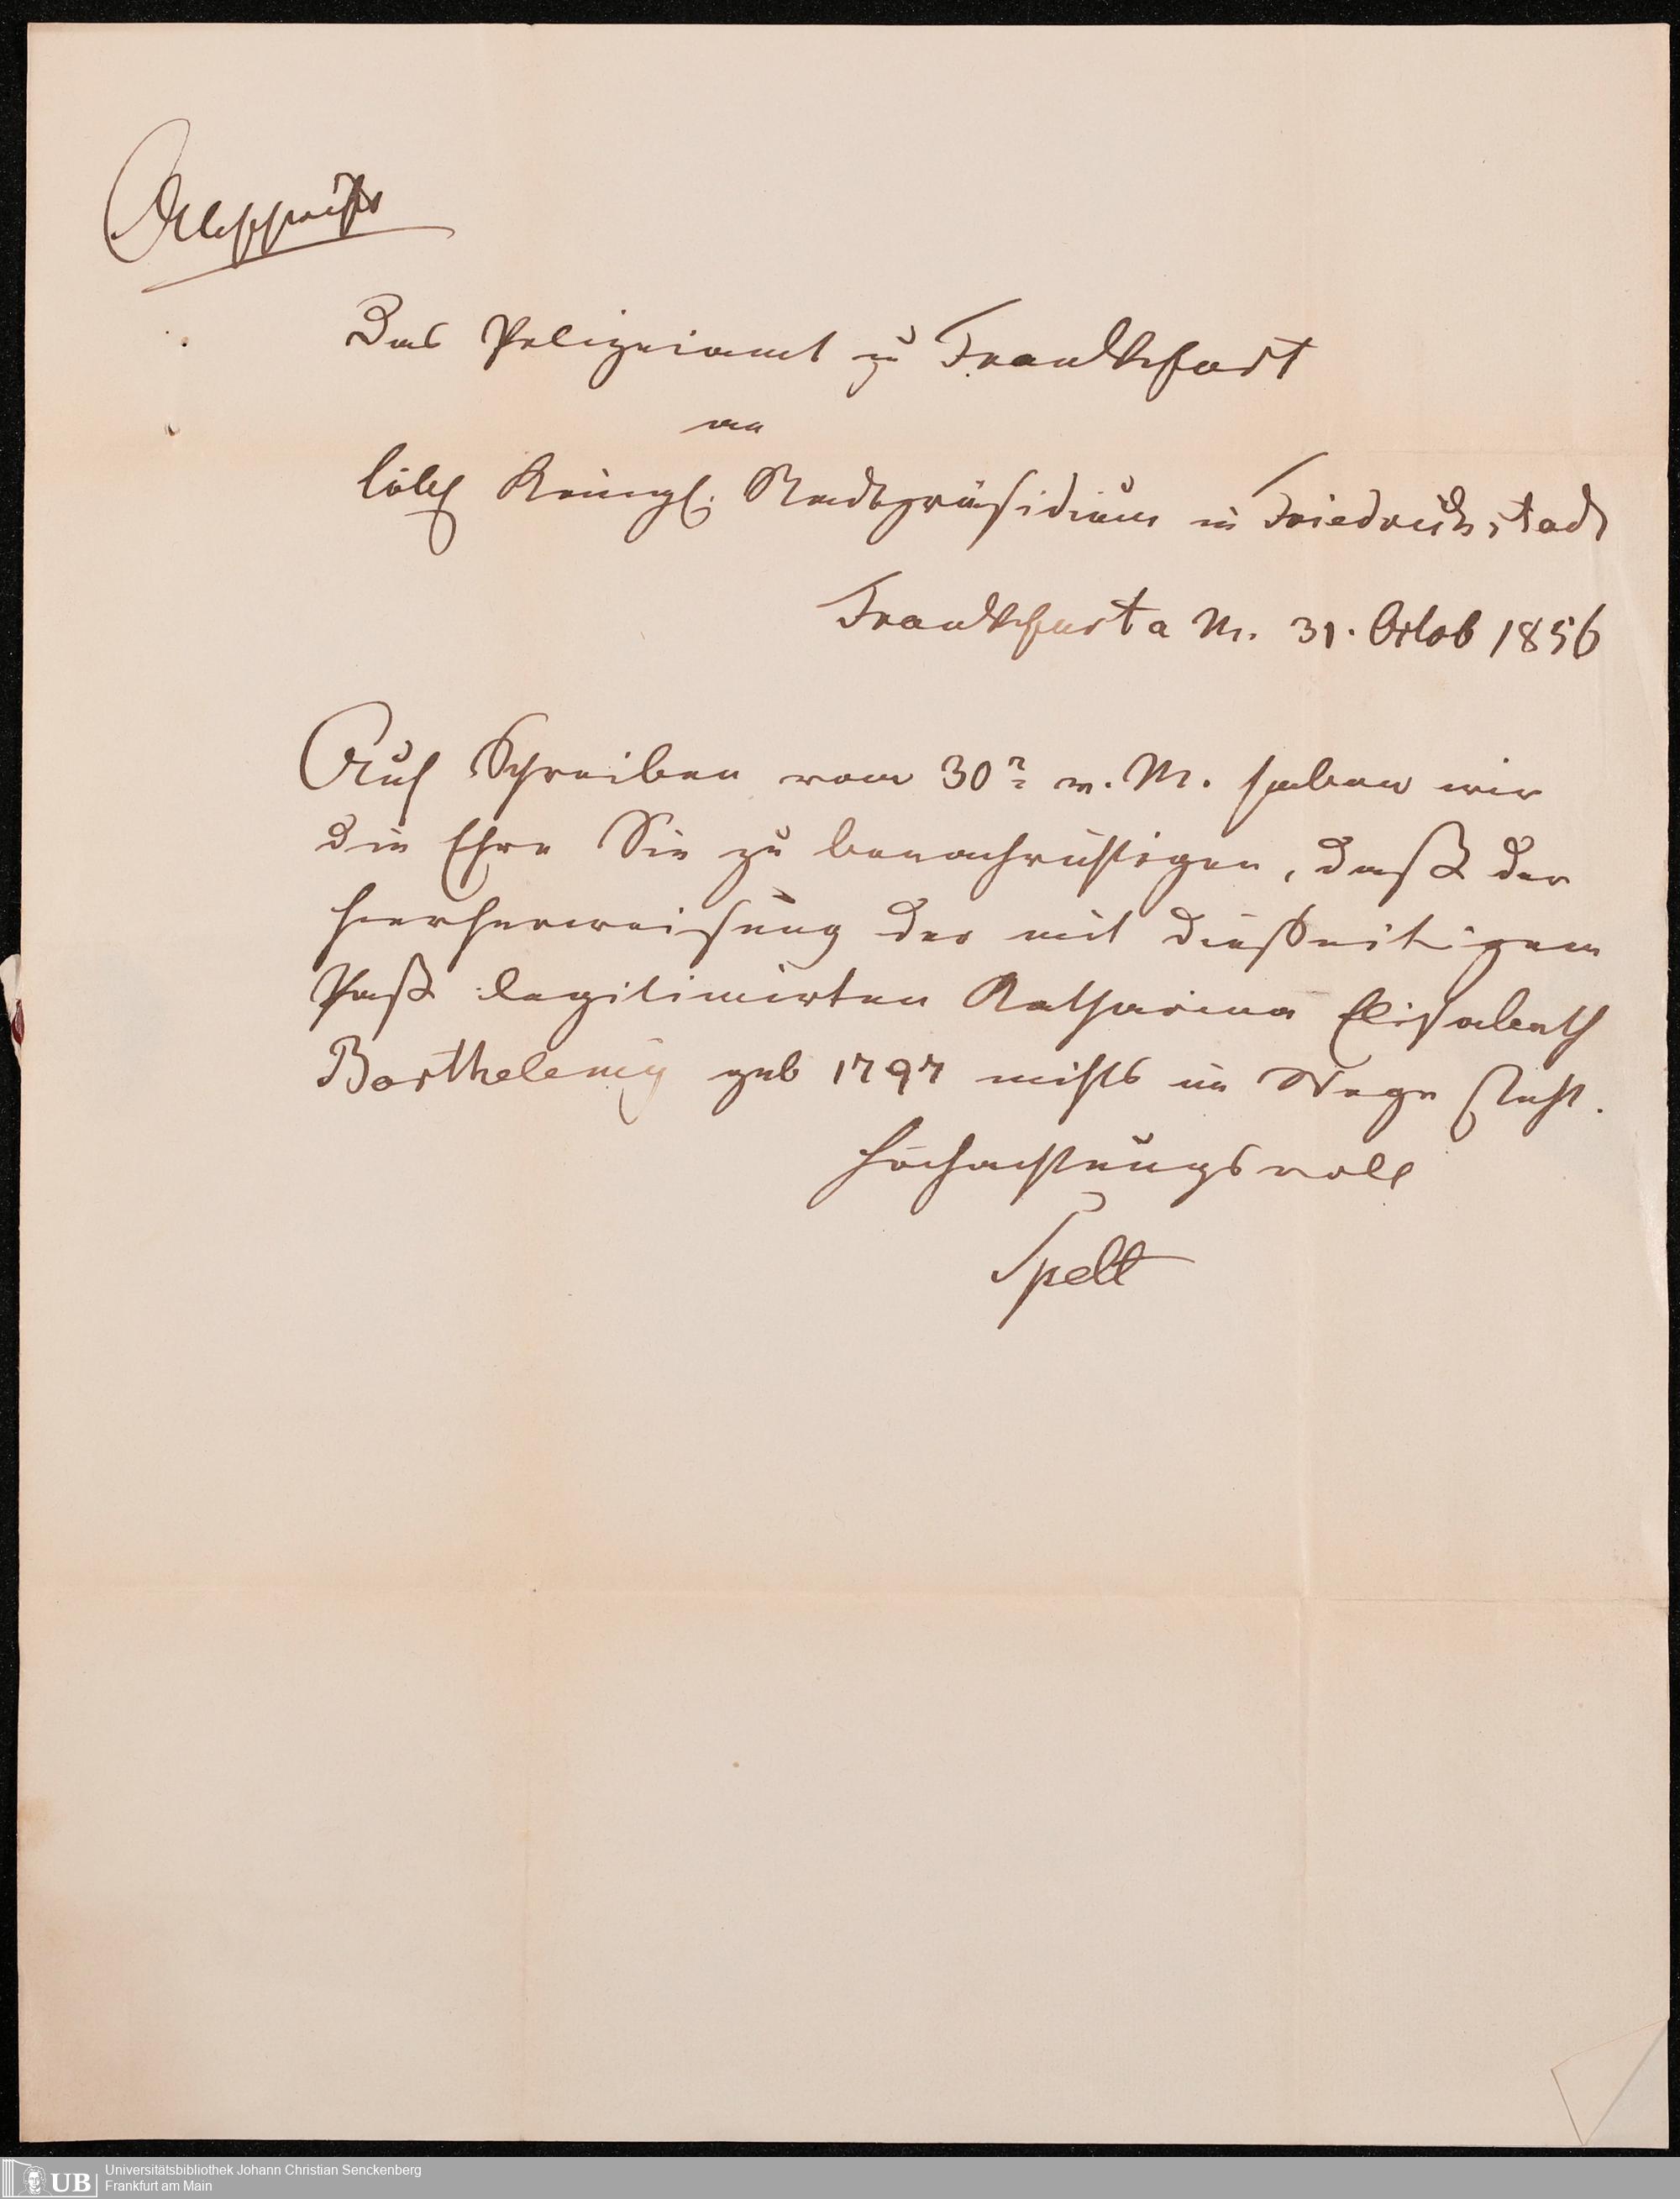 Abschrift
Das Polizeiamt zu Frankfurt
an
löbl Königl. Stadtpräsidium in Friedrichstadt
Frankfurt a M. 31. Octob 1856
Auf Schreiben vom 30n v. M. haben wir
die Ehre Sie zu benachrichtigen, daß der
Hierherweisung der mit dießseitigem
Paß legitimirten Katharina Elisabeth
Barthelemy geb 1797 nichts im Wege steht.
Hochachtungsvoll
Spelt
Universitätsbibliothek Johann Christian Senckenberg
UB Frankfurt am Main